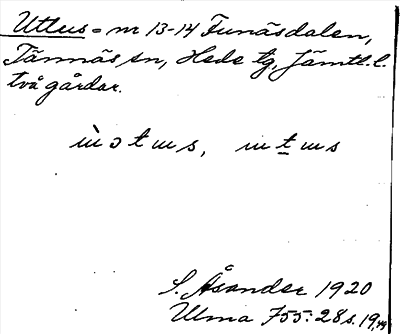 Utlus = nr 13-14 Funäsdalen,
Tännäs sn, Hede tg, Jämtl. l.
två gårdar.
S. Åsander 1920
Ulma 755:28 s. 19,